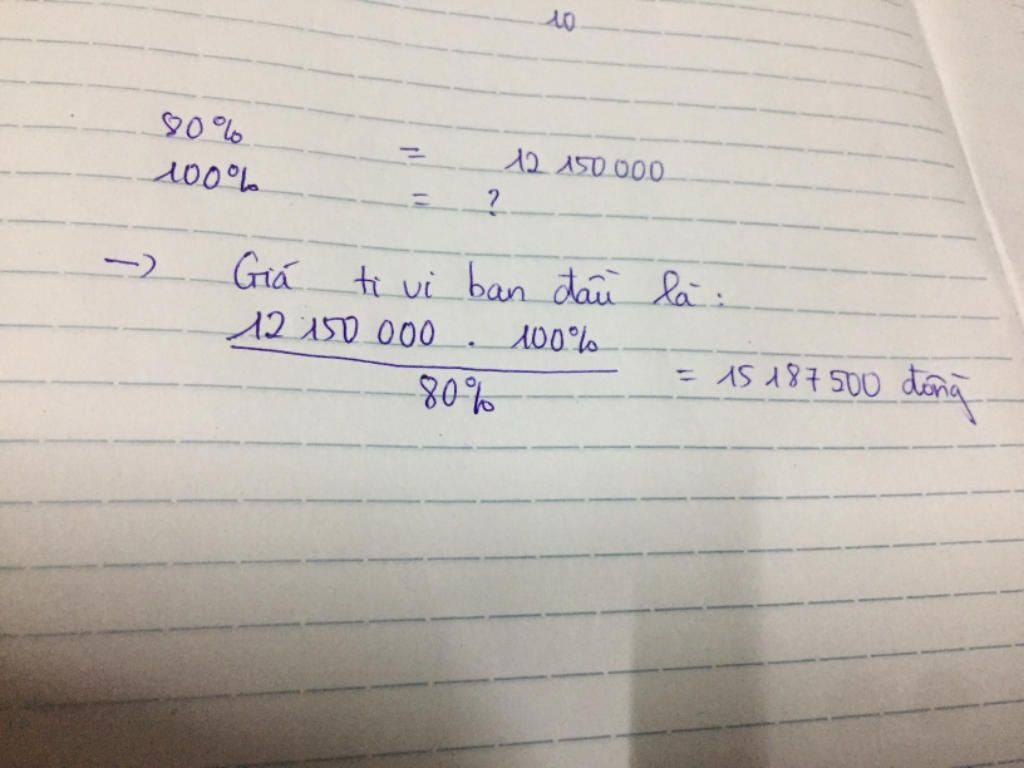 10
80% = 12 150 000
100% = ?
—> Giá ti vi ban đầu là :
12 150 000 . 100%
80%
= 15 187 500 đồng